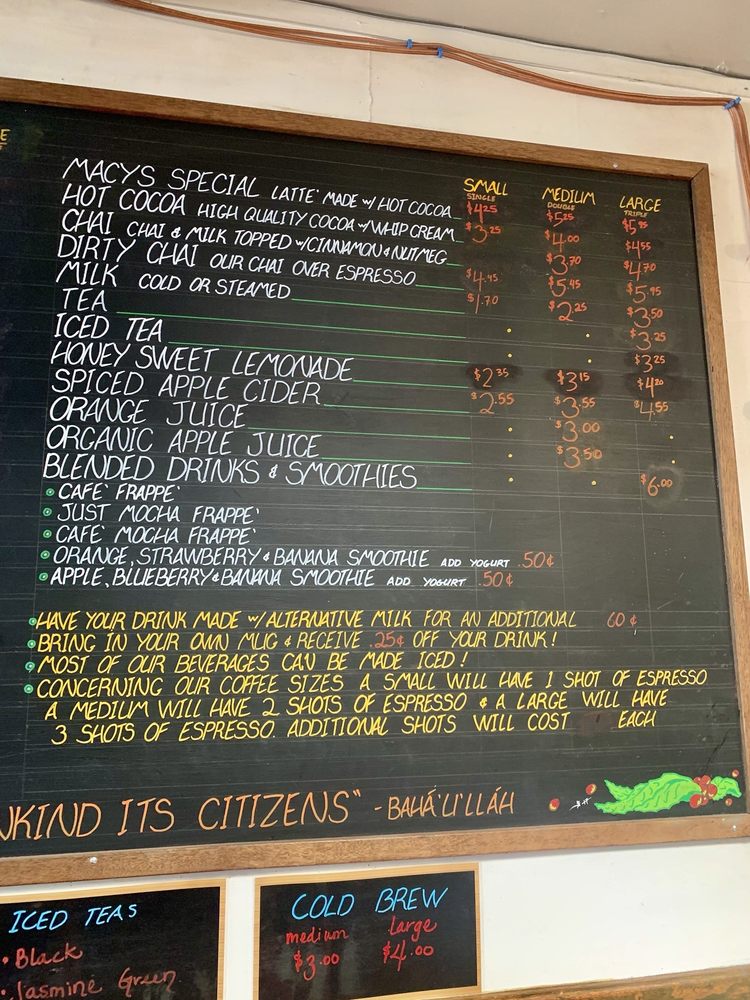 E
SMALL MEDIUM LARGE
SINGLE DOUBLE TRIPLE
MACYS SPECIAL LATTE' MADE w/ HOT COCOA $4.25 $5.25 $5.95
HOT COCOA HIGH QUALITY COCOA w/ WHIP CREAM $3.25 $4.00 $4.55
CHAI CHAI & MILK TOPPED w/CINNAMON & NUTMEG $3.70 $4.70
DIRTY CHAI OUR CHAI OVER ESPRESSO $4.45 $5.45 $5.95
MILK COLD OR STEAMED $1.70 $2.25 $3.50
TEA • • $3.25
ICED TEA • • $3.25
HONEY SWEET LEMONADE $2.35 $3.15 $4.20
SPICED APPLE CIDER $2.55 $3.55 $4.55
ORANGE JUICE • $3.00 •
ORGANIC APPLE JUICE • $3.50 •
BLENDED DRINKS & SMOOTHIES • • $6.00
• CAFE' FRAPPE'
• JUST MOCHA FRAPPE'
• CAFE' MOCHA FRAPPE'
• ORANGE, STRAWBERRY & BANANA SMOOTHIE ADD YOGURT .50¢
• APPLE, BLUEBERRY & BANANA SMOOTHIE ADD YOGURT .50¢
• HAVE YOUR DRINK MADE w/ ALTERNATIVE MILK FOR AN ADDITIONAL 60¢
• BRING IN YOUR OWN MUG & RECEIVE .25¢ OFF YOUR DRINK!
• MOST OF OUR BEVERAGES CAN BE MADE ICED!
• CONCERNING OUR COFFEE SIZES A SMALL WILL HAVE 1 SHOT OF ESPRESSO
A MEDIUM WILL HAVE 2 SHOTS OF ESPRESSO & A LARGE WILL HAVE
3 SHOTS OF ESPRESSO. ADDITIONAL SHOTS WILL COST EACH
NKIND ITS CITIZENS" - BAHÁ'U'LLÁH
ICED TEAS
• Black
• Jasmine Green
COLD BREW
medium large
$3.00 $4.00